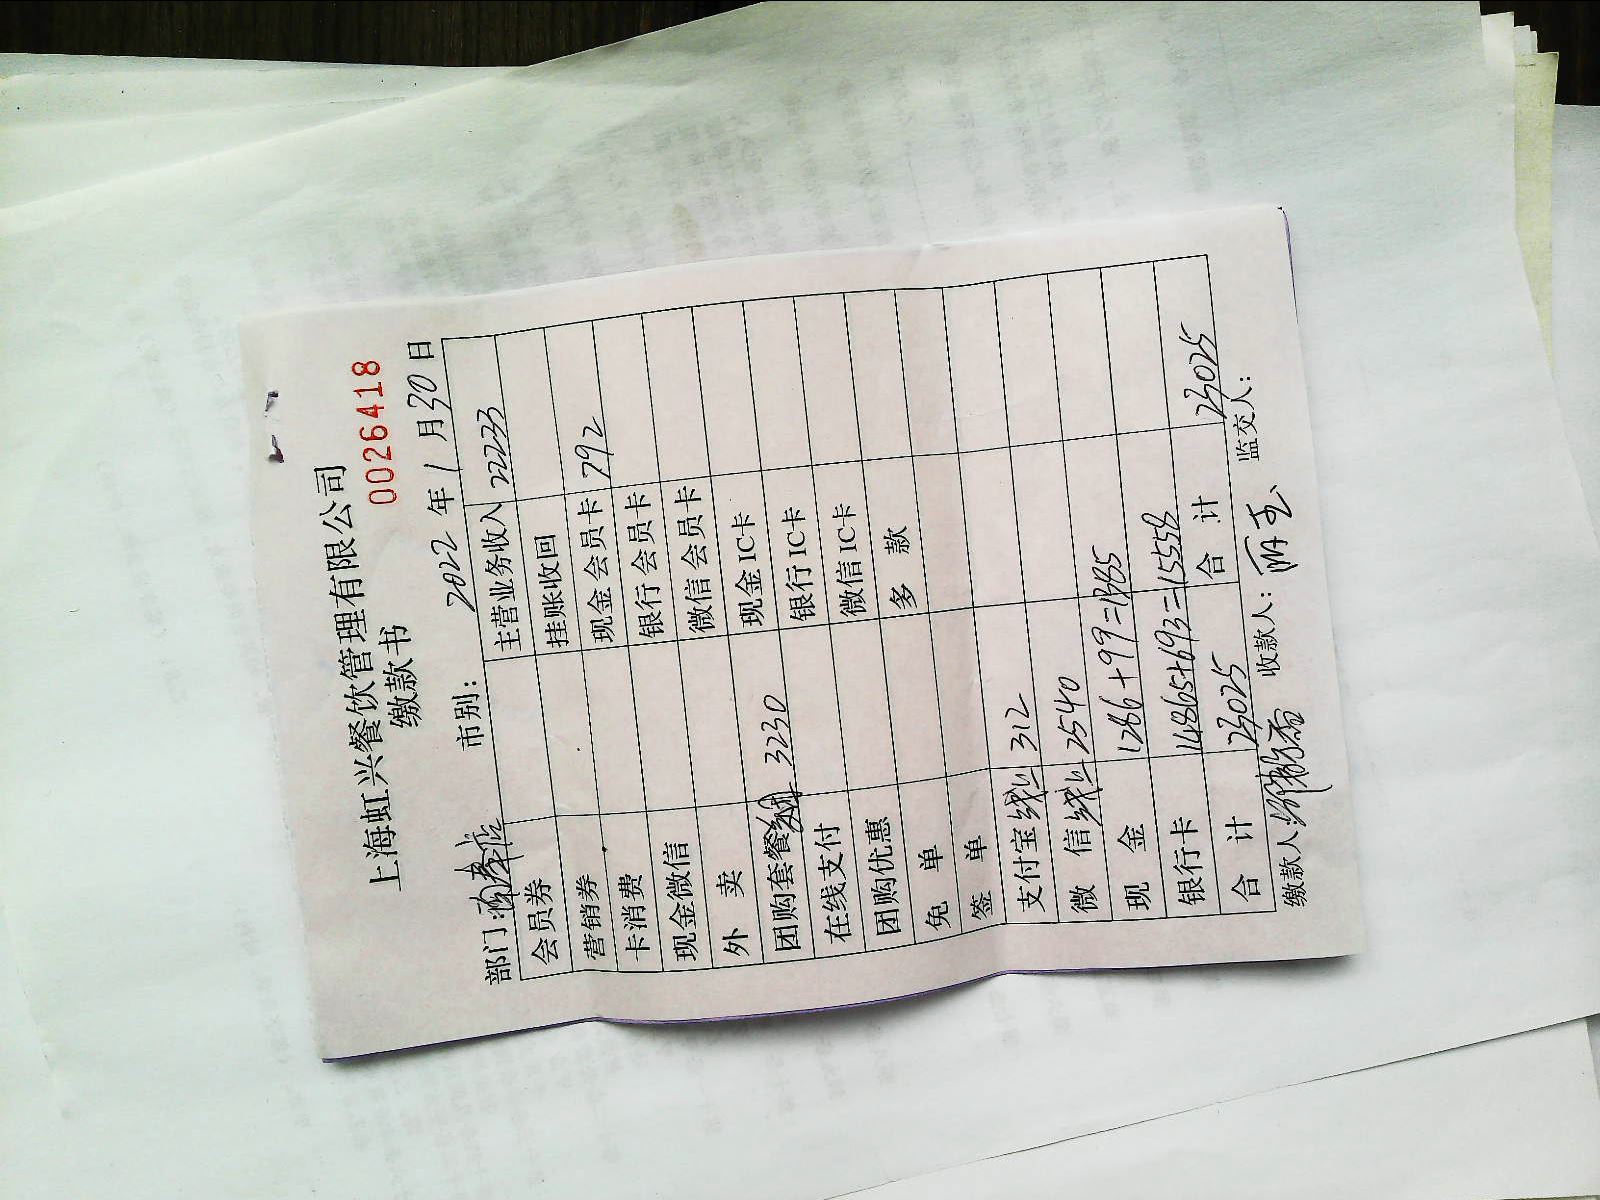 上海虹兴餐饮管理有限公司
缴款书
0026418
部门: 市别: 2022 年 1 月 30 日
会员券 主营业务收入 22233
营销券 挂账收回
卡消费 现金会员卡 792
现金微信 银行会员卡
外 卖 微信会员卡
团购套餐 3230 现金IC卡
在线支付 银行IC卡
团购优惠 微信IC卡
免 单 多 款
签 单
支付宝 312
微 信 2540
现 金 1286+99=1385
银行卡 14865+693=15558
合 计 23025 合 计 23025
缴款人: 收款人: 监交人: